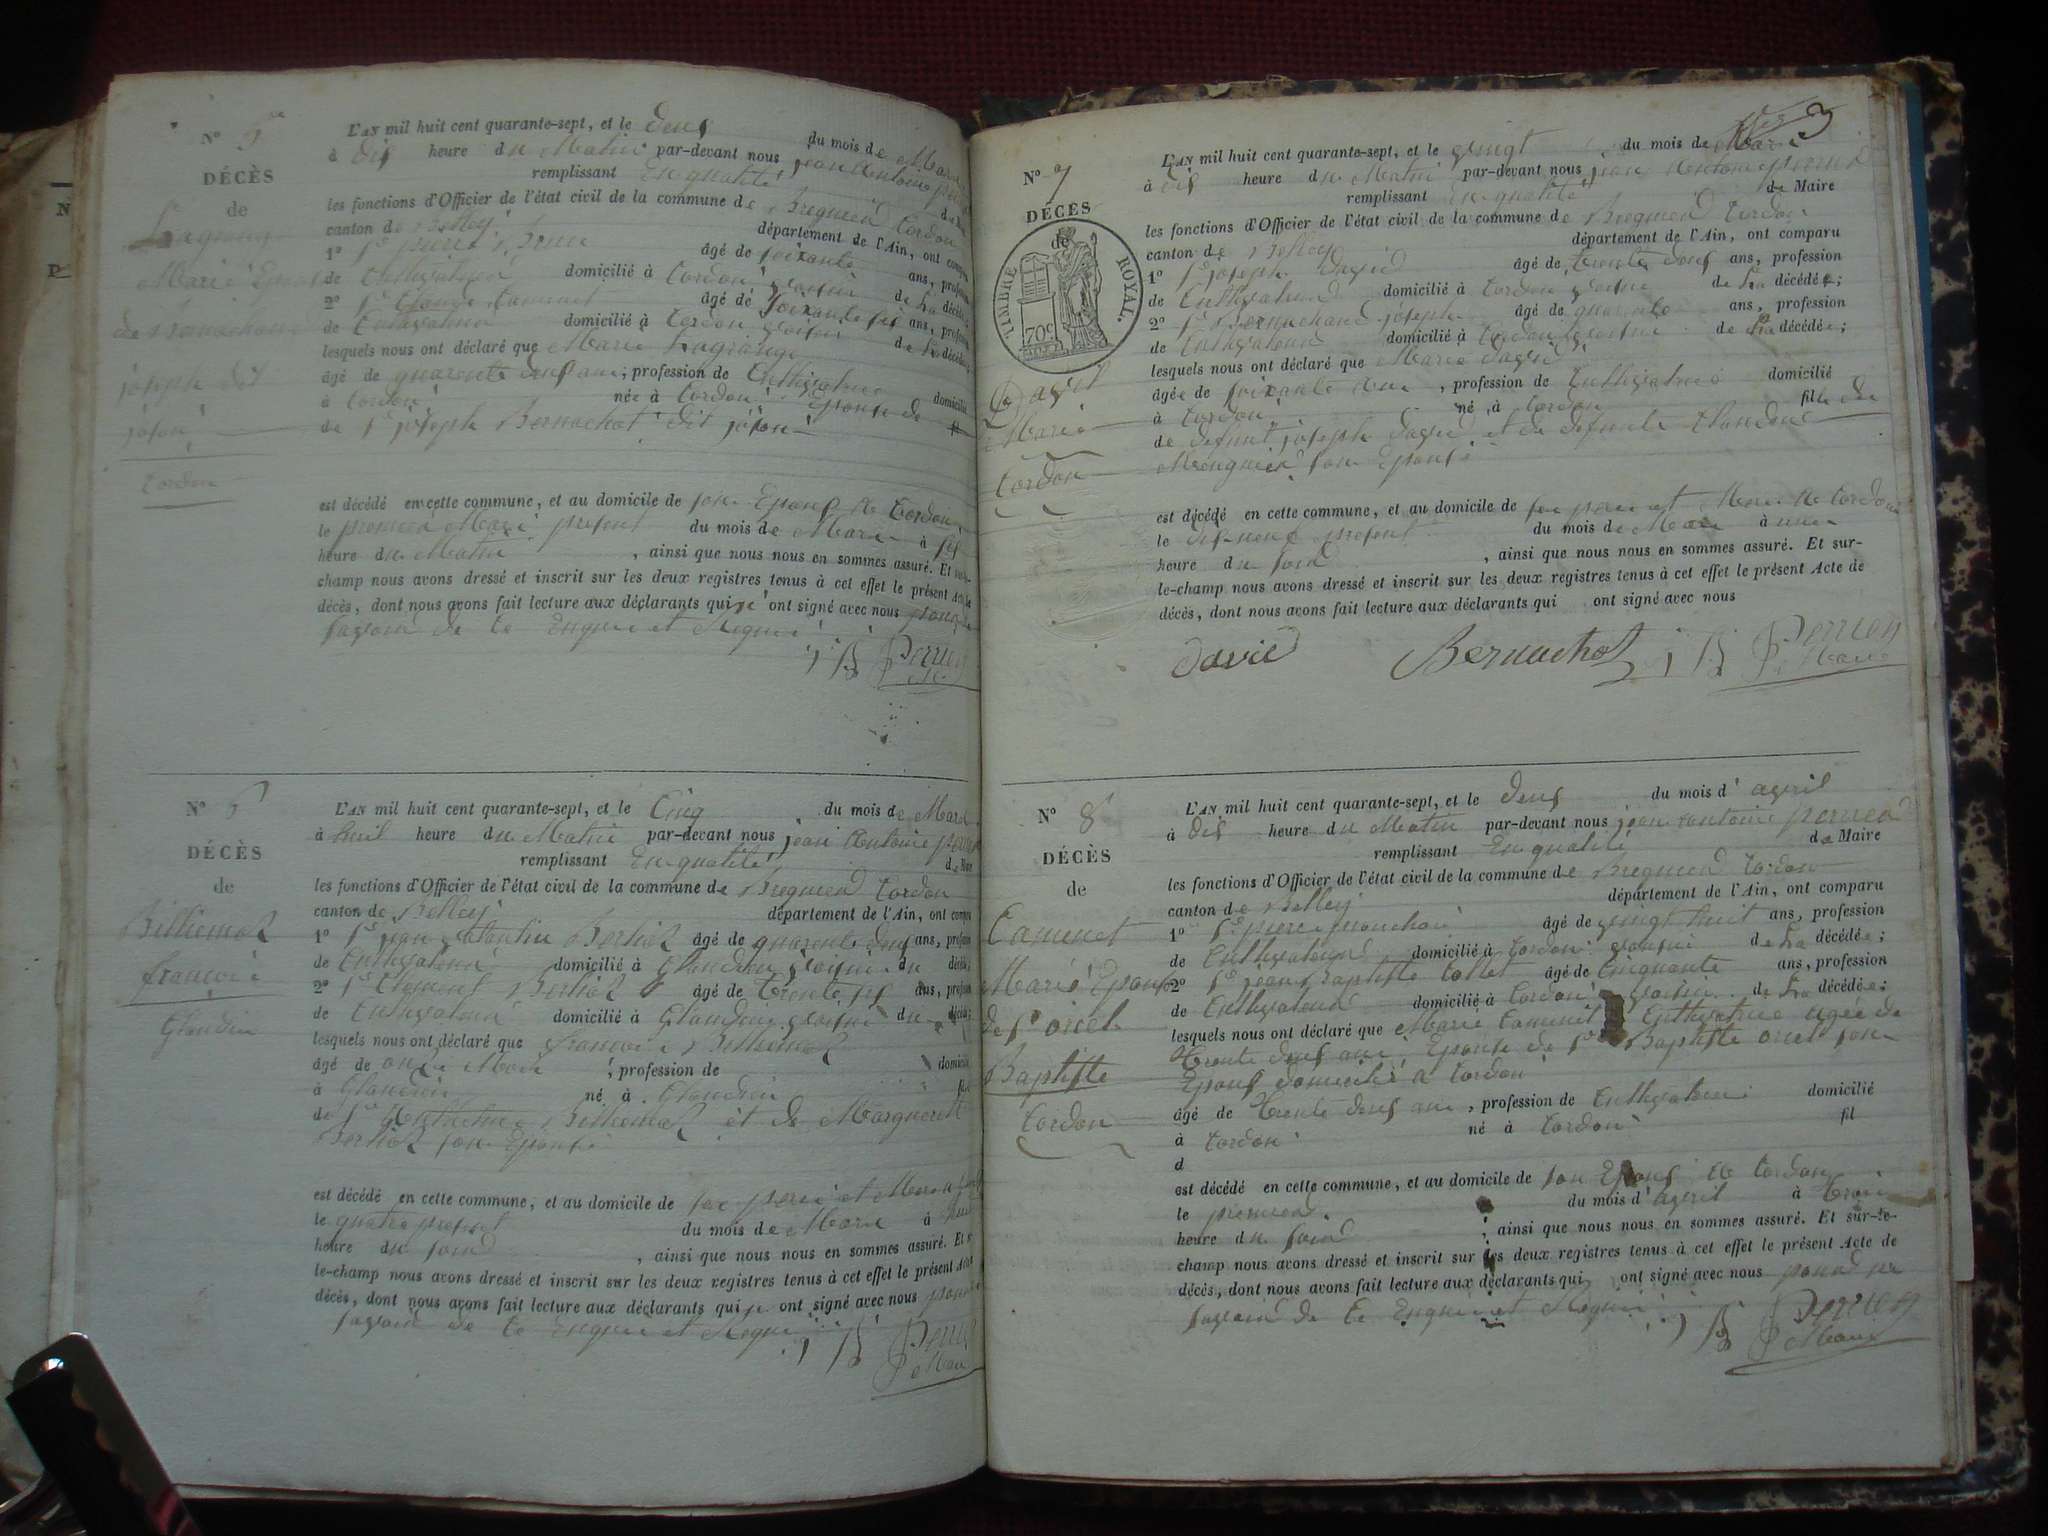 N° 5
DÉCÈS
de
Lagrange
Marie Epouse
de Bernachat
joseph dit
joson
Cordon
L'AN mil huit cent quarante-sept, et le deux du mois de Mars
à dix heure du Matin par-devant nous jean Antoine
remplissant En qualité de
les fonctions d'Officier de l'état civil de la commune de Bregnier Cordon
canton de Belley département de l'Ain, ont
1° Sr pierre âgé de soixante ans,
de Cultivateur domicilié à Cordon voisin de la
2° Sr Claude âgé de soixante six ans,
de Cultivateur domicilié à Cordon voisin de la décédée;
lesquels nous ont déclaré que Marie Lagrange
âgé de quarente deux ans, profession de Cultivatrice domicilié
à Cordon née à Cordon Epouse de
de Sr joseph Bernachat dit joson
est décédé en cette commune, et au domicile de son Epoux de Cordon
le premier Mars present du mois de Mars à six
heure du Matin, ainsi que nous nous en sommes assuré. Et
champ nous avons dressé et inscrit sur les deux registres tenus à cet effet le présent Acte
décès, dont nous avons fait lecture aux déclarants qui ont signé avec nous
savoir de ce Enquis et Requis
N° 6
DÉCÈS
de
Billiemaz
francois
Glandieu
L'AN mil huit cent quarante-sept, et le Cinq du mois de Mars
à huit heure du Matin par-devant nous jean Antoine
remplissant En qualité de
les fonctions d'Officier de l'état civil de la commune de Bregnier Cordon
canton de Belley département de l'Ain, ont
1° Sr jean Berlioz âgé de quarente deux ans,
de Cultivateur domicilié à Glandieu voisin du
2° Sr Clement Berlioz âgé de trente six ans,
de Cultivateur domicilié à Glandieu voisin du
lesquels nous ont déclaré que francois Billiemaz
âgé de onze Mois, profession de
à Glandieu né à Glandieu
de Sr Billiemaz et de Marguerite
Berlioz son Epouse
est décédé en cette commune, et au domicile de ses pere et Mere
le quatre present du mois de Mars à
heure du soir, ainsi que nous nous en sommes assuré. Et
le-champ nous avons dressé et inscrit sur les deux registres tenus à cet effet le présent Acte
décès, dont nous avons fait lecture aux déclarants qui ont signé avec nous
savoir de ce Enquis et Requis
3
N° 7
DÉCÈS
de
TIMBRE ROYAL.
70c
David
Marie
Cordon
L'AN mil huit cent quarante-sept, et le vingt du mois de Mars
à dix heure du Matin par-devant nous jean Antoine perrier
remplissant En qualité de Maire
les fonctions d'Officier de l'état civil de la commune de Bregnier Cordon
canton de Belley département de l'Ain, ont comparu
1° Sr joseph David âgé de trente deux ans, profession
de Cultivateur domicilié à Cordon voisin de la décédée;
2° Sr Bernachat joseph âgé de quarente ans, profession
de Cultivateur domicilié à Cordon voisin de la décédée;
lesquels nous ont déclaré que Marie David
âgée de soixante, profession de Cultivatrice domicilié
à Cordon né à Cordon fille de
de defunt joseph David et de defunte Claudine
son Epouse
est décédé en cette commune, et au domicile de ses pere et Mere de Cordon
le dix neuf present du mois de Mars à une
heure du soir, ainsi que nous nous en sommes assuré. Et sur-
le-champ nous avons dressé et inscrit sur les deux registres tenus à cet effet le présent Acte de
décès, dont nous avons fait lecture aux déclarants qui ont signé avec nous
David Bernachot
N° 8
DÉCÈS
de
Camenet
Marie Epouse
de Sr oncel
Baptiste
Cordon
L'AN mil huit cent quarante-sept, et le deux du mois d'avril
à dix heure du Matin par-devant nous jean antoine perrier
remplissant En qualité de Maire
les fonctions d'Officier de l'état civil de la commune de Bregnier Cordon
canton de Belley département de l'Ain, ont comparu
1° Sr pierre âgé de vingt huit ans, profession
de Cultivateur domicilié à Cordon voisin de la décédée;
2° Sr jean Baptiste Collet âgé de Cinquante ans, profession
de Cultivateur domicilié à Cordon voisin de la décédée;
lesquels nous ont déclaré que Marie Camenet Cultivatrice agée de
trente deux ans, Epouse de Sr Baptiste oncel son
Epoux domicilié a Cordon
âgé de trente deux ans, profession de Cultivateur domicilié
à Cordon né à Cordon fil
d
est décédé en cette commune, et au domicile de son Epoux de Cordon
le premier du mois d'avril à trois
heure du soir, ainsi que nous nous en sommes assuré. Et sur-le-
champ nous avons dressé et inscrit sur les deux registres tenus à cet effet le présent Acte de
décès, dont nous avons fait lecture aux déclarants qui ont signé avec nous pour ne
savoir de ce Enquis et Requis